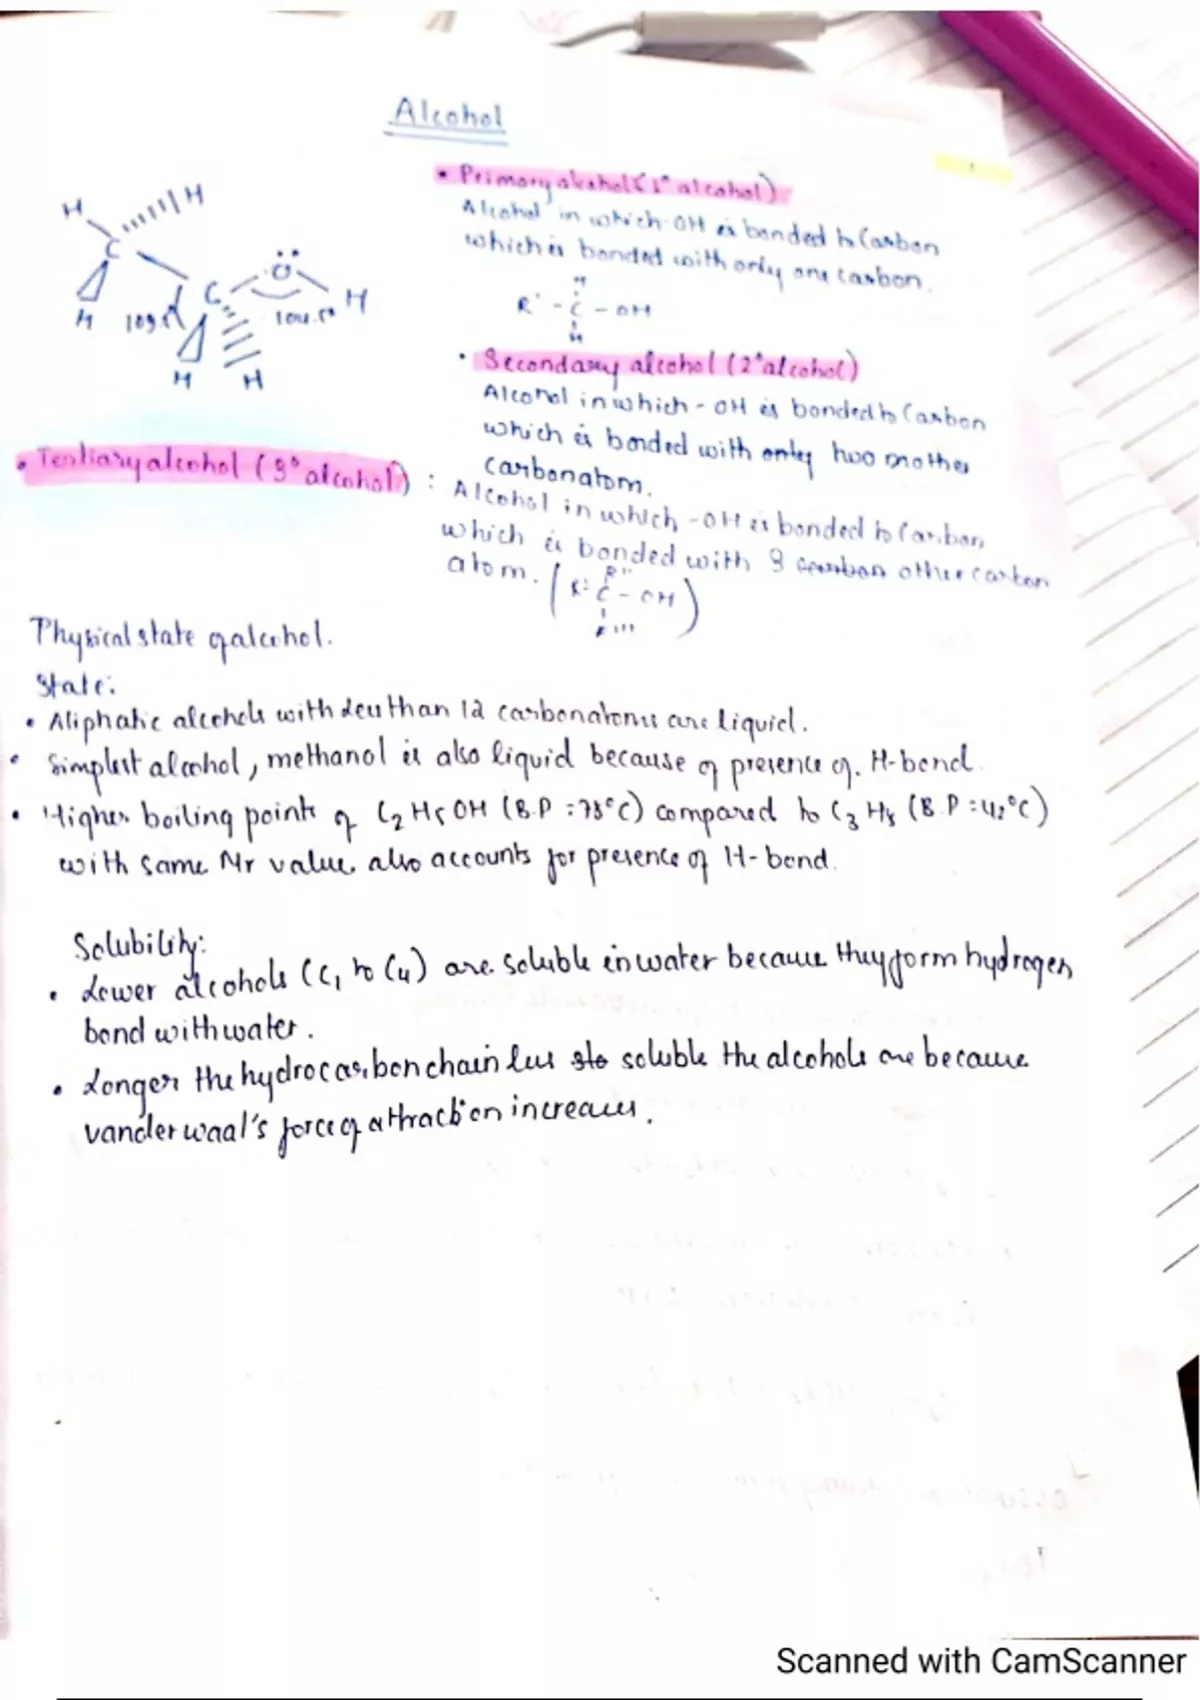 Alcohol
• Primary alcohol (1° alcohol)
Alcohol in which -OH is bonded to Carbon
which is bonded with only one carbon.
H
R' - C - OH
H
H
H
C
H
109.5°
C
O
H
104.5°
H
H
• Secondary alcohol (2° alcohol)
Alcohol in which - OH is bonded to Carbon
which is bonded with only two another
carbonatom.
• Tertiary alcohol (3° alcohol) : Alcohol in which -OH is bonded to Carbon
which is bonded with 3 carbon other carbon
atom.
R''
(R' - C - OH)
R'''
Physical state of alcohol.
State:
• Aliphatic alcohols with less than 12 carbonatoms are liquid.
• Simplest alcohol, methanol is also liquid because of presence of. H-bond.
• Higher boiling point of C2H5OH (B.P = 78°C) compared to C3H8 (B.P = 42°C)
with same Mr value, also accounts for presence of H-bond.
Solubility:
• Lower alcohols (C1 to C4) are soluble in water because they form hydrogen
bond with water.
• Longer the hydrocarbon chain less slo soluble the alcohols are because
vander waal's force of attraction increases.
Scanned with CamScanner